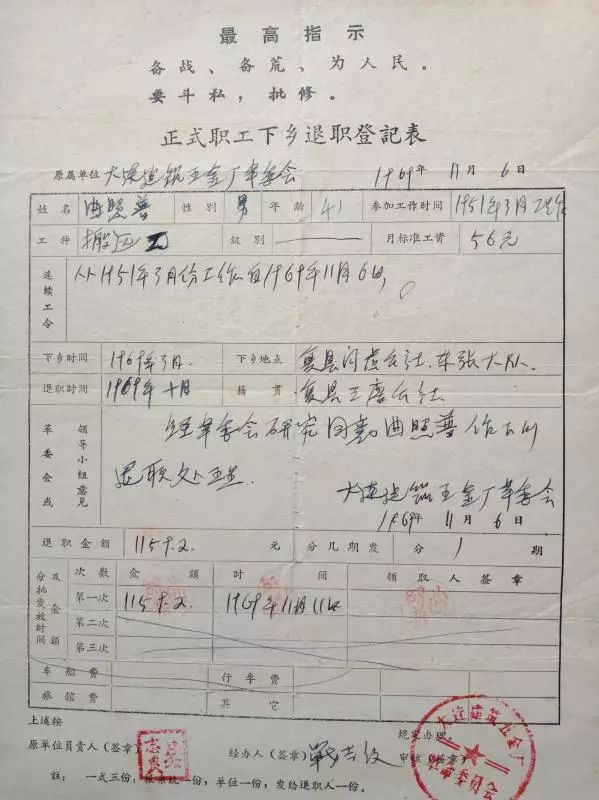 最高指示
备战、备荒、为人民。
要斗私，批修。
正式职工下乡退职登記表
原属单位 大连建筑五金厂革委会 1969年 11月 6日
姓名 曲照普 性別 男 年龄 41 参加工作时间 1951年3月工作
工种 搬运工 级別 月标准工资 56元
连续工令 从1951年3月份工作 自1969年11月6日,
下乡时间 1969年3月. 下乡地点 复县 公社. 东张大队.
退职时间 1969年十月 籍贯 复县 公社
革委会或领导小组意见 经革委会研究同意曲照普作下乡
退职处理.
大连建筑五金厂革委会
1969年 11月 6日
退职金額 1159.2. 元 分几期发 分 1 期
分批发放时间及金額 次数 金額 时间 领取人签章
第一次 1159.2. 1969年11月11日
第二次
第三次
车船费 行李费
旅舘费 其它
上述按 规定办理。
原单位员責人（签章） 经办人（签章） 审核（签章）
註：一式三份：报系统一份，单位一份，发给退职人一份。
大连建筑五金厂
革命委员会